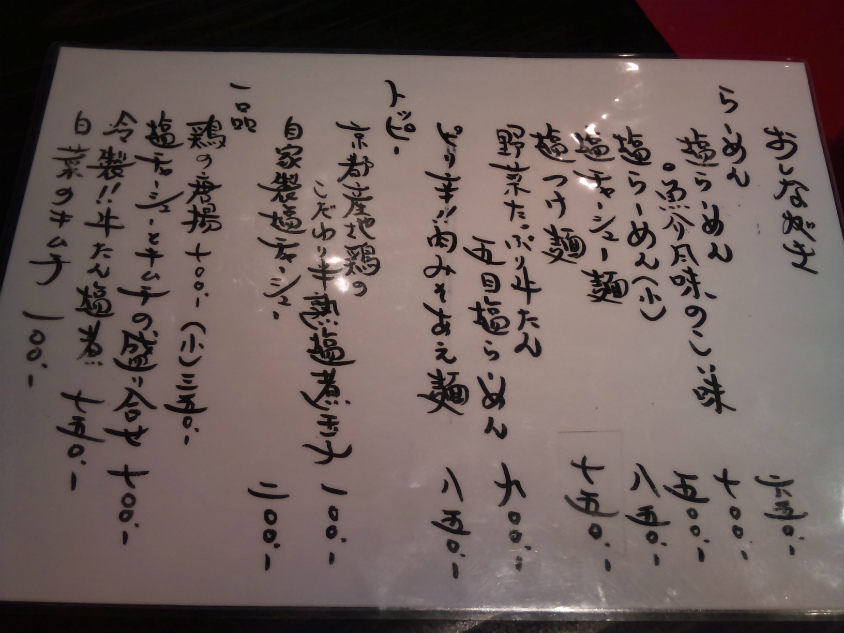 おしながき
らーめん
塩らーめん 六五〇.-
・魚介風味のこい味 七〇〇.-
塩らーめん(小) 五〇〇.-
塩チャーシュー麺 八五〇.-
塩つけ麺 七五〇.-
野菜たっぷり牛たん
五目塩らーめん 九〇〇.-
ピリ辛!!肉みそあえ麺 八五〇.-
トッピー
京都産地鶏の
こだわり半熟塩煮玉子 一〇〇.-
自家製塩チャーシュー 二〇〇.-
一品
鶏の唐揚 七〇〇.- (小)三五〇.-
塩チャーシューとキムチの盛り合せ 七〇〇.-
冷製!!牛たん塩煮 七五〇.-
白菜のキムチ 一〇〇.-